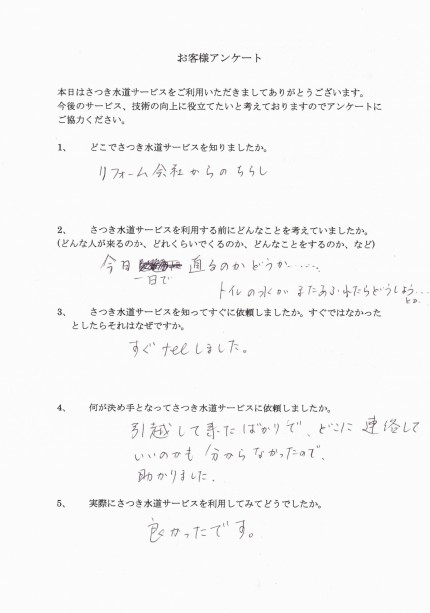 お客様アンケート
本日はさつき水道サービスをご利用いただきましてありがとうございます。
今後のサービス、技術の向上に役立てたいと考えておりますのでアンケートに
ご協力ください。
1、 どこでさつき水道サービスを知りましたか。
リフォーム会社からのちらし
2、 さつき水道サービスを利用する前にどんなことを考えていましたか。
(どんな人が来るのか、どれくらいでくるのか、どんなことをするのか、など)
今日 直るのかどうか……
一日で
トイレの水がまたあふれたらどうしよう…
とか。
3、 さつき水道サービスを知ってすぐに依頼しましたか。すぐではなかった
としたらそれはなぜですか。
すぐtelしました。
4、 何が決め手となってさつき水道サービスに依頼しましたか。
引越して来たばかりで、どこに連絡して
いいのかも分からなかったので、
助かりました。
5、 実際にさつき水道サービスを利用してみてどうでしたか。
良かったです。